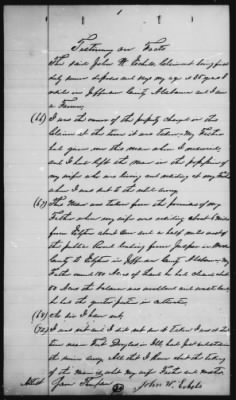 Testimony on Facts
The said John W. Echols Claimant being first
duly sworn deposes and says my age is 25 years I
reside in Jefferson County Alabama and I am
a Farmer
I was the owner of the property charged in this
Claim at the time it was taken. My Father
had given me this mare when I married
and I had left the mare in the possession of
my wife who was living and residing at my Father's
when I was
The Mare was taken from the premises of my
Father where my wife was residing about 6 miles
from Elyton about one and a half miles east of
the public Road leading from Jasper in
County to Elyton in Jefferson County Alabama. My
Father owned 160 Acres of land he had cleared about
50 Acres the balance was woodland and
he had the greater portion in cultivation
I was not and I did not see it taken I was at the
time near Fort Douglas in Ill. had just
the service. All that I know about the taking
of the mare is what my wife Father and mother
Attest
John W. Echols